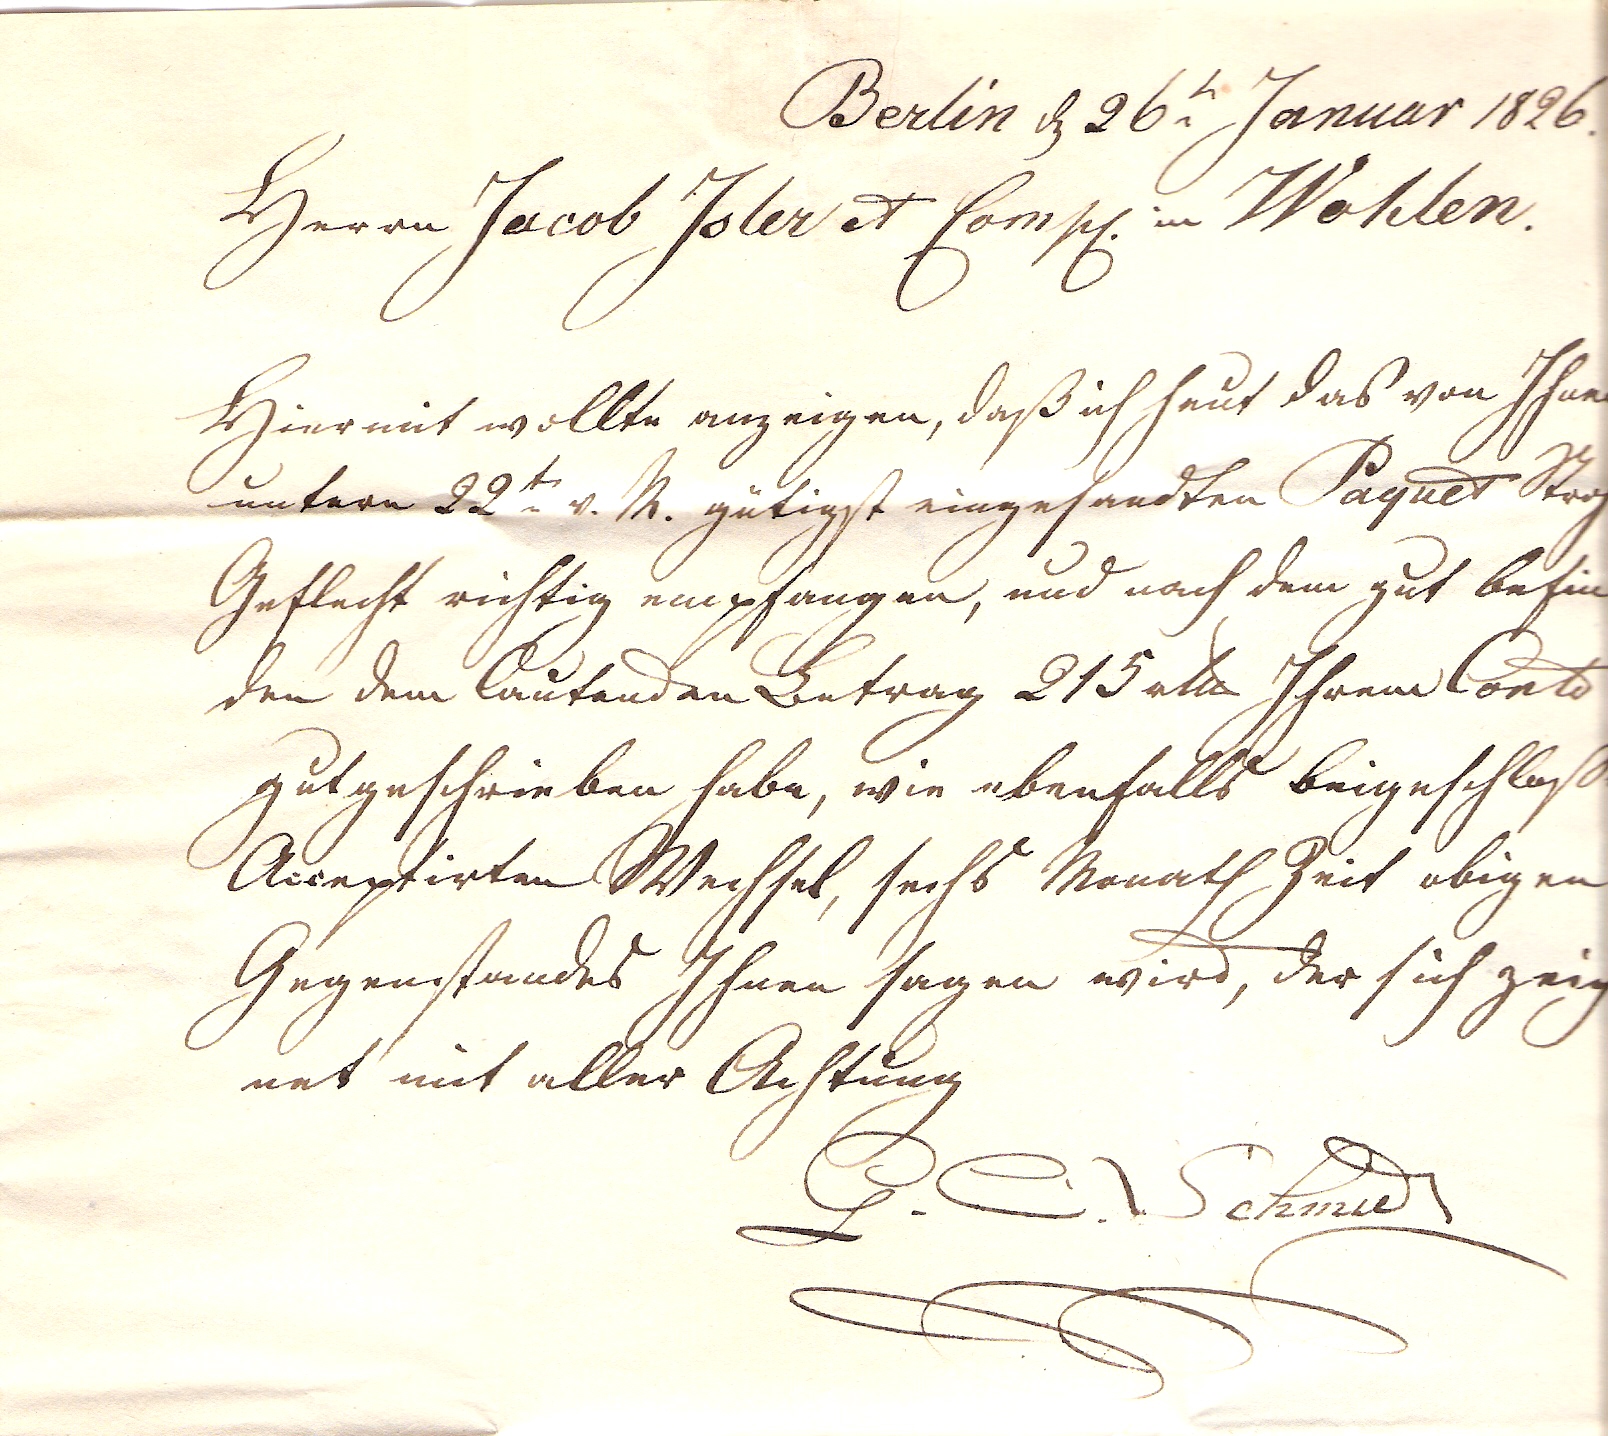 Berlin d 26t Januar 1826.
Herrn Jacob Isler et Comp. in Wohlen.
Hiermit wollte anzeigen, daß ich heut das von Ihnen
untern 22t v. M. gütigst eingesandten Paquet Stroh
Geflecht richtig empfangen, und nach dem gut befin
den dem lautenden Betrag 215 rth Ihrem Conto
gutgeschrieben habe, wie ebenfalls beigeschloß
Acceptirten Wechsel, sechs Monath Zeit obigen
Gegenstandes Ihnen sagen wird, der sich zeig
net mit aller Achtung
G. C. Schmidt